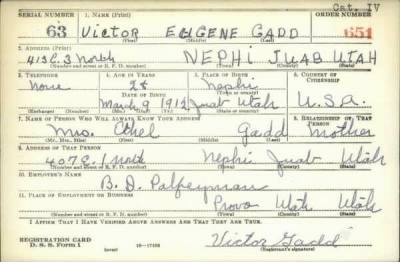 Cat. IV
SERIAL NUMBER 1. NAME (Print) ORDER NUMBER
63 VICTOR EUGENE GADD 651
(First) (Middle) (Last)
2. ADDRESS (Print)
413 E. 3 North NEPHI JUAB UTAH
(Number and street or R. F. D. number) (Town) (County) (State)
3. TELEPHONE 4. AGE IN YEARS 5. PLACE OF BIRTH 6. COUNTRY OF CITIZENSHIP
None 28 Nephi
DATE OF BIRTH (Town or county)
March 9 1912 Juab Utah U.S.A.
(Exchange) (Number) (Mo.) (Day) (Yr.) (State or country)
7. NAME OF PERSON WHO WILL ALWAYS KNOW YOUR ADDRESS 8. RELATIONSHIP OF THAT PERSON
Mrs. Ethel Gadd Mother
(Mr., Mrs., Miss) (First) (Middle) (Last)
9. ADDRESS OF THAT PERSON
407 E. 1 North Nephi Juab Utah
(Number and street or R. F. D. number) (Town) (County) (State)
10. EMPLOYER'S NAME
B. D. Palfreyman
11. PLACE OF EMPLOYMENT OR BUSINESS
Provo Utah Utah
(Number and street or R. F. D. number) (Town) (County) (State)
I AFFIRM THAT I HAVE VERIFIED ABOVE ANSWERS AND THAT THEY ARE TRUE.
REGISTRATION CARD
D. S. S. Form 1 (over) 16—17105 Victor Gadd
(Registrant's signature)